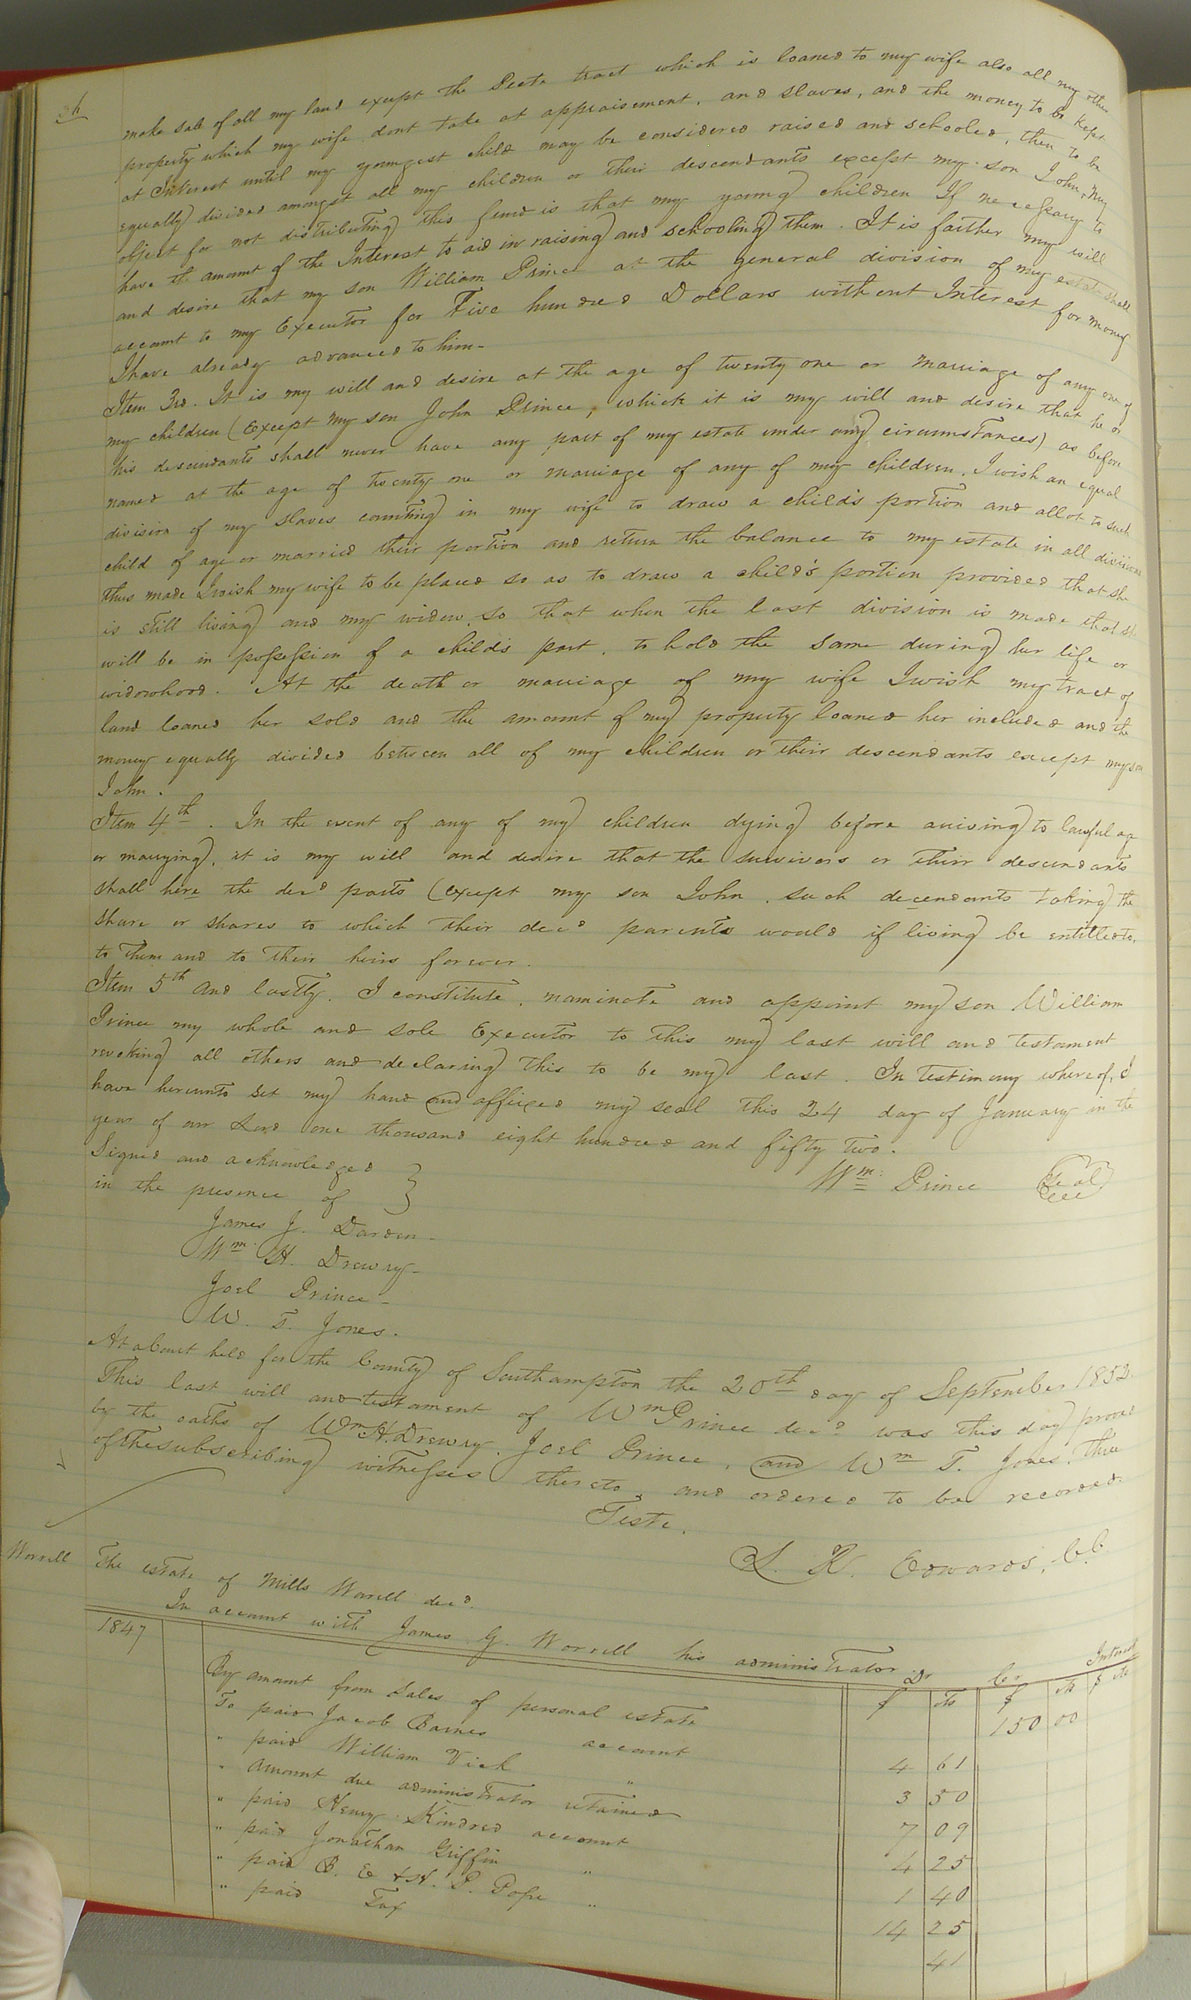 make sale of all my land except the tract which is loaned to my wife also all my other
property which my wife dont take at appraisement, and slaves, and the money to be kept
at Interest until my youngest child may be considered raised and schooled, then to be
equally divided amongst all my children or their descendants except my son John, My
object for not distributing this fund is that my young children If necessary to
have the amount of the Interest to aid in raising and schooling them. It is farther my will
and desire that my son William Prince at the general division of my estate shall
account to my Executor for Five hundred Dollars without Interest for money
I have already advanced to him-
Item 3rd. It is my will and desire at the age of twenty one or marriage of any one of
my children (Except my son John Prince, which it is my will and desire that he or
his descendants shall never have any part of my estate under any circumstances) as before
named at the age of twenty one or marriage of any of my children, I wish an equal
division of my slaves counting in my wife to draw a child's portion and allot to such
child of age or married their portion and return the balance to my estate in all divisions
thus made I wish my wife to be placed so as to draw a child's portion provided that she
is still living and my widow, so that when the last division is made that she
will be in possession of a child's part, to hold the same during her life or
widowhood. At the death or marriage of my wife I wish my tract of
land loaned her sold and the amount of my property loaned her included and the
money equally divided between all of my children or their descendants except my son
John.
Item 4th. In the event of any of my children dying before arriving to lawful age
or marrying, it is my will and desire that the survivors or their descendants
shall here the decd parts (except my son John, such decendants taking the
share or shares to which their decd parents would if living be entitled to,
to them and to their heirs forever.
Item 5th and lastly. I constitute, nominate and appoint my son William
Prince my whole and sole Executor to this my last will and testament
revoking all others and declaring this to be my last. In testimony whereof, I
have hereunto set my hand and affixed my seal this 24 day of January in the
year of our Lord one thousand eight hundred and fifty two.
Signed and acknowledged }
in the presence of
Wm: Prince Seal
James J. Darden-
Wm. H. Drewry-
Joel Prince-
W. T. Jones.
At a Court held for the County of Southampton the 20th day of September 1852.
This last will and testament of Wm Prince decd was this day proved
by the oaths of Wm H. Drewry, Joel Prince, and Wm T. Jones, three
of the subscribing witnesses thereto, and ordered to be recorded.
Teste,
L. R. Edwards, C.C.
Worrell The estate of Mills Worrell decd.
In account with James G. Worrell his administrator Dr Cr Interest
1847 $ cts $ cts $ cts
By amount from sales of personal estate 150 00
To paid Jacob Barnes account 4 61
" paid William Vick " 3 50
" amount due administrator retained 7 09
" paid Henry Kindred account 4 25
" paid Jonathan Griffin " 1 40
" paid B. E & H. P. Pope " 14 25
" paid Tax 41